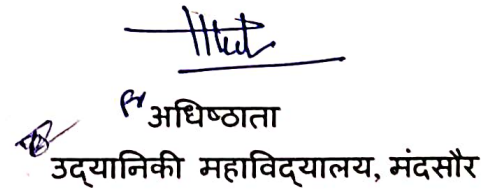 अधिष्ठाता
उद्यानिकी महाविद्यालय, मंदसौर